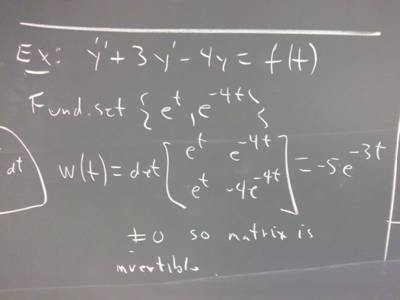 Ex: y'' + 3y' - 4y = f(t)
Fund. set { e^t, e^{-4t} }
dt
W(t) = det [ e^t e^{-4t} ; e^t -4e^{-4t} ] = -5e^{-3t}
≠0 so matrix is
invertible.